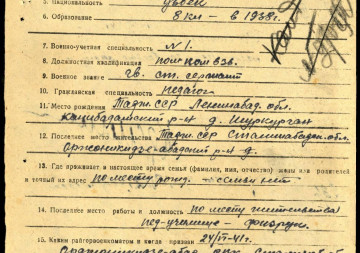 5. Национальность узбек
6. Образование 8 кл — в 1938 г.
7. Военно-учетная специальность № 1.
8. Должностная квалификация пом. ком. взв.
9. Военное звание гв. ст. сержант
10. Гражданская специальность педагог
11. Место рождения Тадж. ССР Ленинабад. обл.
Канибадамский р-н д. Шуркурган
12. Последнее место жительства Тадж. ССР Сталинабад. обл.
Орджоникидзе-абадский р-н д.
13. Где проживает в настоящее время семья (фамилия, имя, отчество) жены или родителей
и точный их адрес по месту рожд. — семьи нет
14. Последнее место работы и должность по месту жительства
пед-училище —
15. Каким райгорвоенкоматом и когда призван 24/VI-41 г.